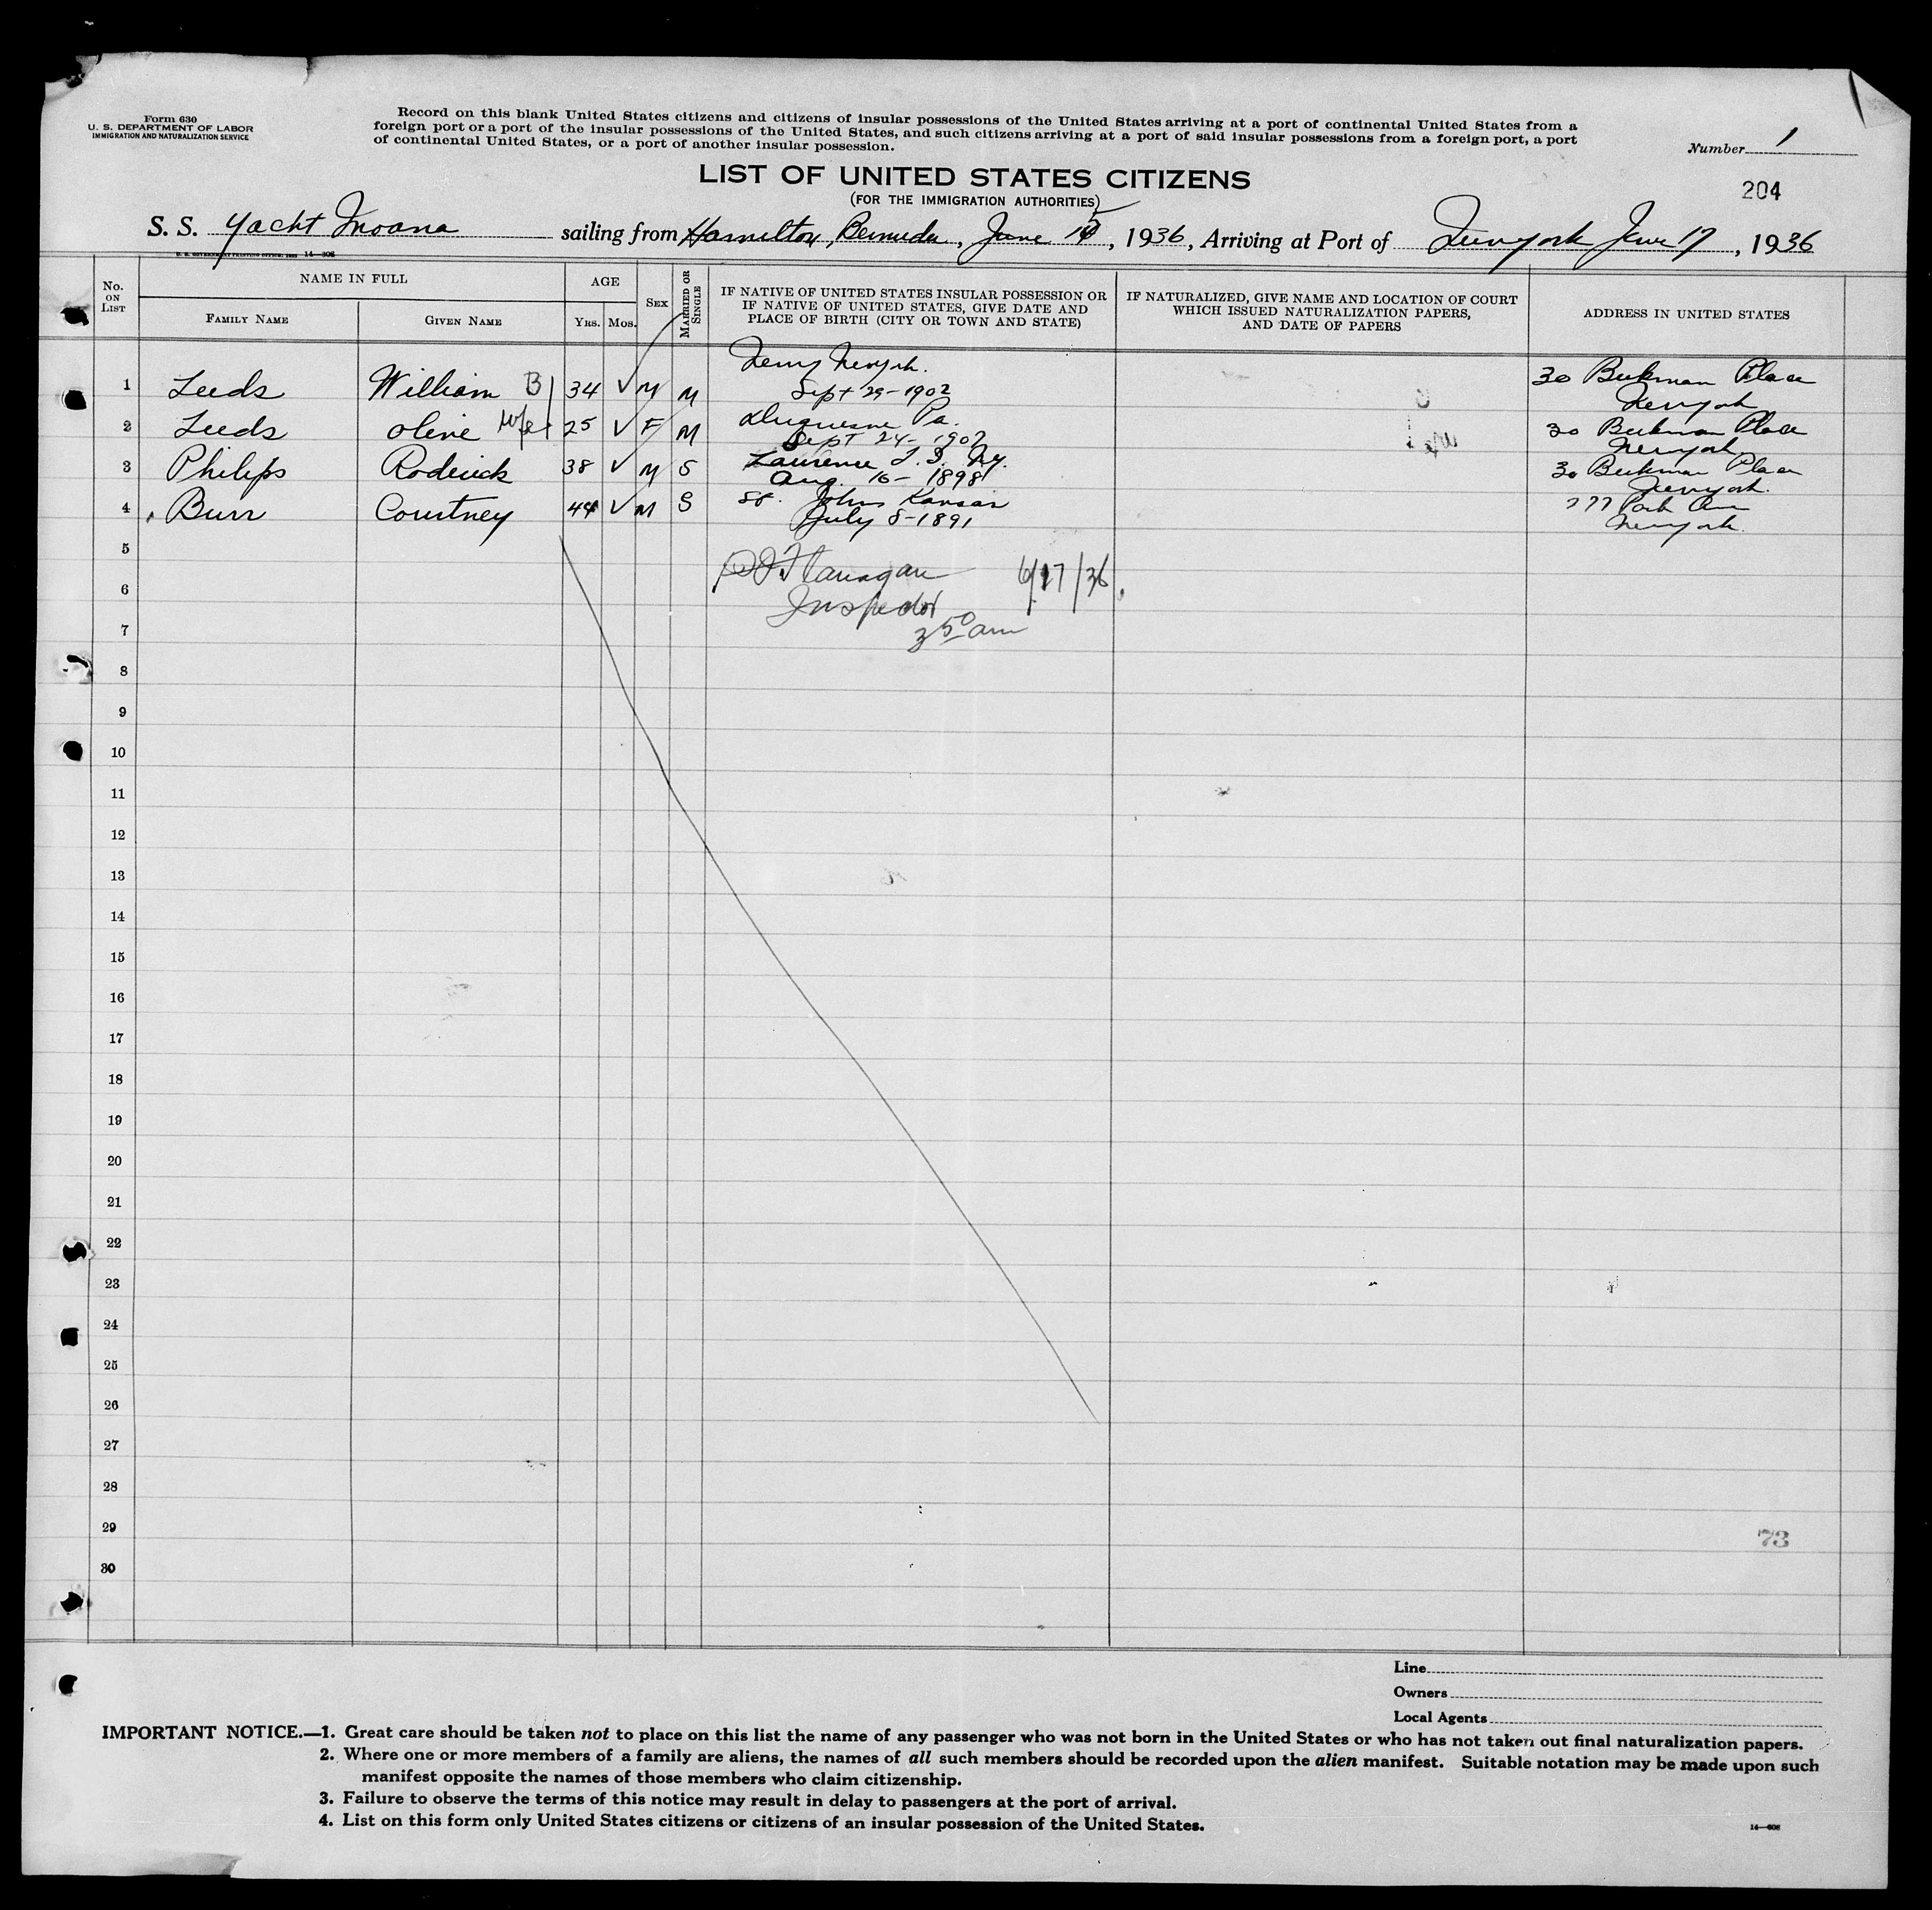 Form 630
U. S. DEPARTMENT OF LABOR
IMMIGRATION AND NATURALIZATION SERVICE
Record on this blank United States citizens and citizens of insular possessions of the United States arriving at a port of continental United States from a
foreign port or a port of the insular possessions of the United States, and such citizens arriving at a port of said insular possessions from a foreign port, a port
of continental United States, or a port of another insular possession.
Number 1
204
LIST OF UNITED STATES CITIZENS
(FOR THE IMMIGRATION AUTHORITIES)
S. S. Yacht Moana sailing from Hamilton, Bermuda, June 15, 1936, Arriving at Port of New York June 17, 1936
U. S. GOVERNMENT PRINTING OFFICE: 14—608
No. ON LIST
NAME IN FULL
FAMILY NAME
GIVEN NAME
AGE
YRS. MOS.
SEX
MARRIED OR SINGLE
IF NATIVE OF UNITED STATES INSULAR POSSESSION OR
IF NATIVE OF UNITED STATES, GIVE DATE AND
PLACE OF BIRTH (CITY OR TOWN AND STATE)
IF NATURALIZED, GIVE NAME AND LOCATION OF COURT
WHICH ISSUED NATURALIZATION PAPERS,
AND DATE OF PAPERS
ADDRESS IN UNITED STATES
1 Leeds William B 34 ✓ M M New York. Sept 29-1902 30 Beekman Place New York
2 Leeds Olive Wife 25 ✓ F M Duquesne Pa. Sept 24-1902 30 Beekman Place New York
3 Philips Roderick 38 ✓ M S Lawrence L. I. Ny. Aug. 16-1898 30 Beekman Place New York.
4 Burr Courtney 44 ✓ M S St. Johns Kansas July 8-1891 277 Park Ave New York.
5
6
7
Flanagan 6/17/36
Inspector
3 50 am
8
9
10
11
12
13
14
15
16
17
18
19
20
21
22
23
24
25
26
27
28
29
30
73
Line
Owners
Local Agents
IMPORTANT NOTICE.—1. Great care should be taken not to place on this list the name of any passenger who was not born in the United States or who has not taken out final naturalization papers.
2. Where one or more members of a family are aliens, the names of all such members should be recorded upon the alien manifest. Suitable notation may be made upon such
manifest opposite the names of those members who claim citizenship.
3. Failure to observe the terms of this notice may result in delay to passengers at the port of arrival.
4. List on this form only United States citizens or citizens of an insular possession of the United States.
14—608